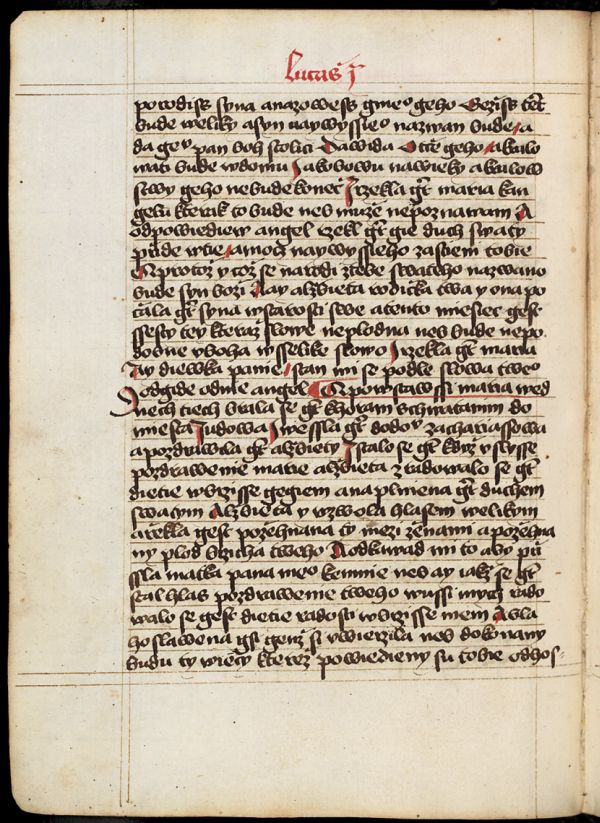 Lucas j
porodiss syna anazowess gmeo geho Tenť
bude weliky asyn naywyssieo nazwan bude a
da gey pan boh stolici Dawida Otcě geho akralo
wati bude wdomu Jakobowu nawieky akralow
stwy geho nebude konec J rzekla gt maria kan
gelu kterak to bude neb muže nepoznawam A
odpowiediew angel rzekl gt gie duch swaty
przide wtie amoc naywyssieho zastieni tobie
Aprotož y což se narodi ztebe swateho nazwano
bude syn boži A ay alžbieta rodička twa y ona po
čala gt syna wstarosti swe atento miesiec gest
ssesty tey kteraž slowe neplodna neb bude nepo
dobne uboha wsselike slowo J rzekla gt maria
Ay diewka panie stan mi se podle slowa tweo
J odgide odnie angel Apowstawssi maria wed
nech tiech brala se gt khoram schwatanim do
miesta Judowa J wessla gt domow zachariassowa
apozdrawila gt alžbiety J stalo se gt když uslysse
pozdrawenie marie alžbieta zradowalo se gt
dietie wbrzisse gegiem anaplniena gt duchem
swatym Alžbieta y wzwola hlasem welikym
arzekla gest požehnana ty mezi ženami apožehna
ny plod brzicha tweho A odkuwad mi to aby przi
ssla matka pana meo kemnie neb ay iakž se gt
stal hlas pozdrawenie tweho wussi mych rado
walo se gest dietie radosti wbrzisse mem A bla
hoslawena gsi genž si uwierzila neb dokonany
budu ty wieci kterez powiedieny su tobie odhos-